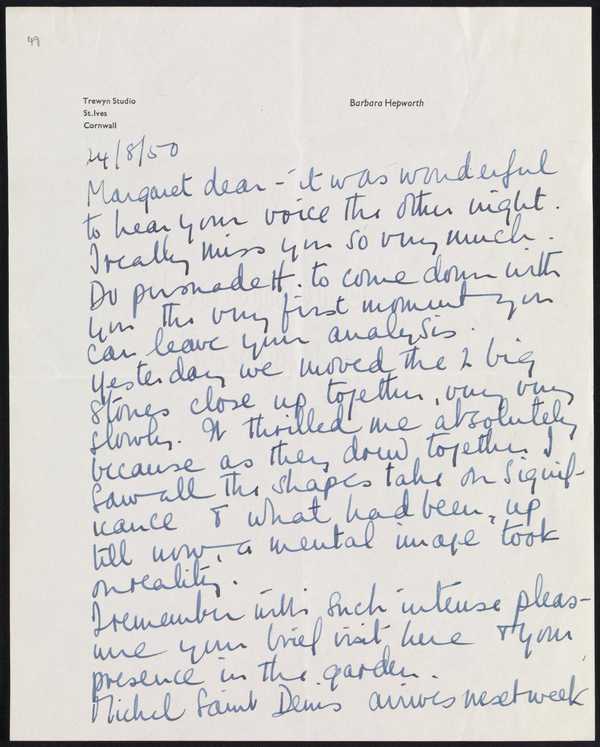 49
Trewyn Studio
St.Ives
Cornwall
Barbara Hepworth
24/8/50
Margaret dear – it was wonderful
to hear your voice the other night.
I really miss you so very much.
Do persuade H. to come down with
you the very first moment you
can leave your analysis.
Yesterday we moved the 2 big
stones close up together, very very
slowly. It thrilled me absolutely
because as they drew together I
saw all the shapes take on signif-
icance & what had been, up
till now, a mental image took
on reality.
I remember with such intense pleas-
ure your brief visit here & your
presence in the garden.
Michel Saint Denis arrives next week